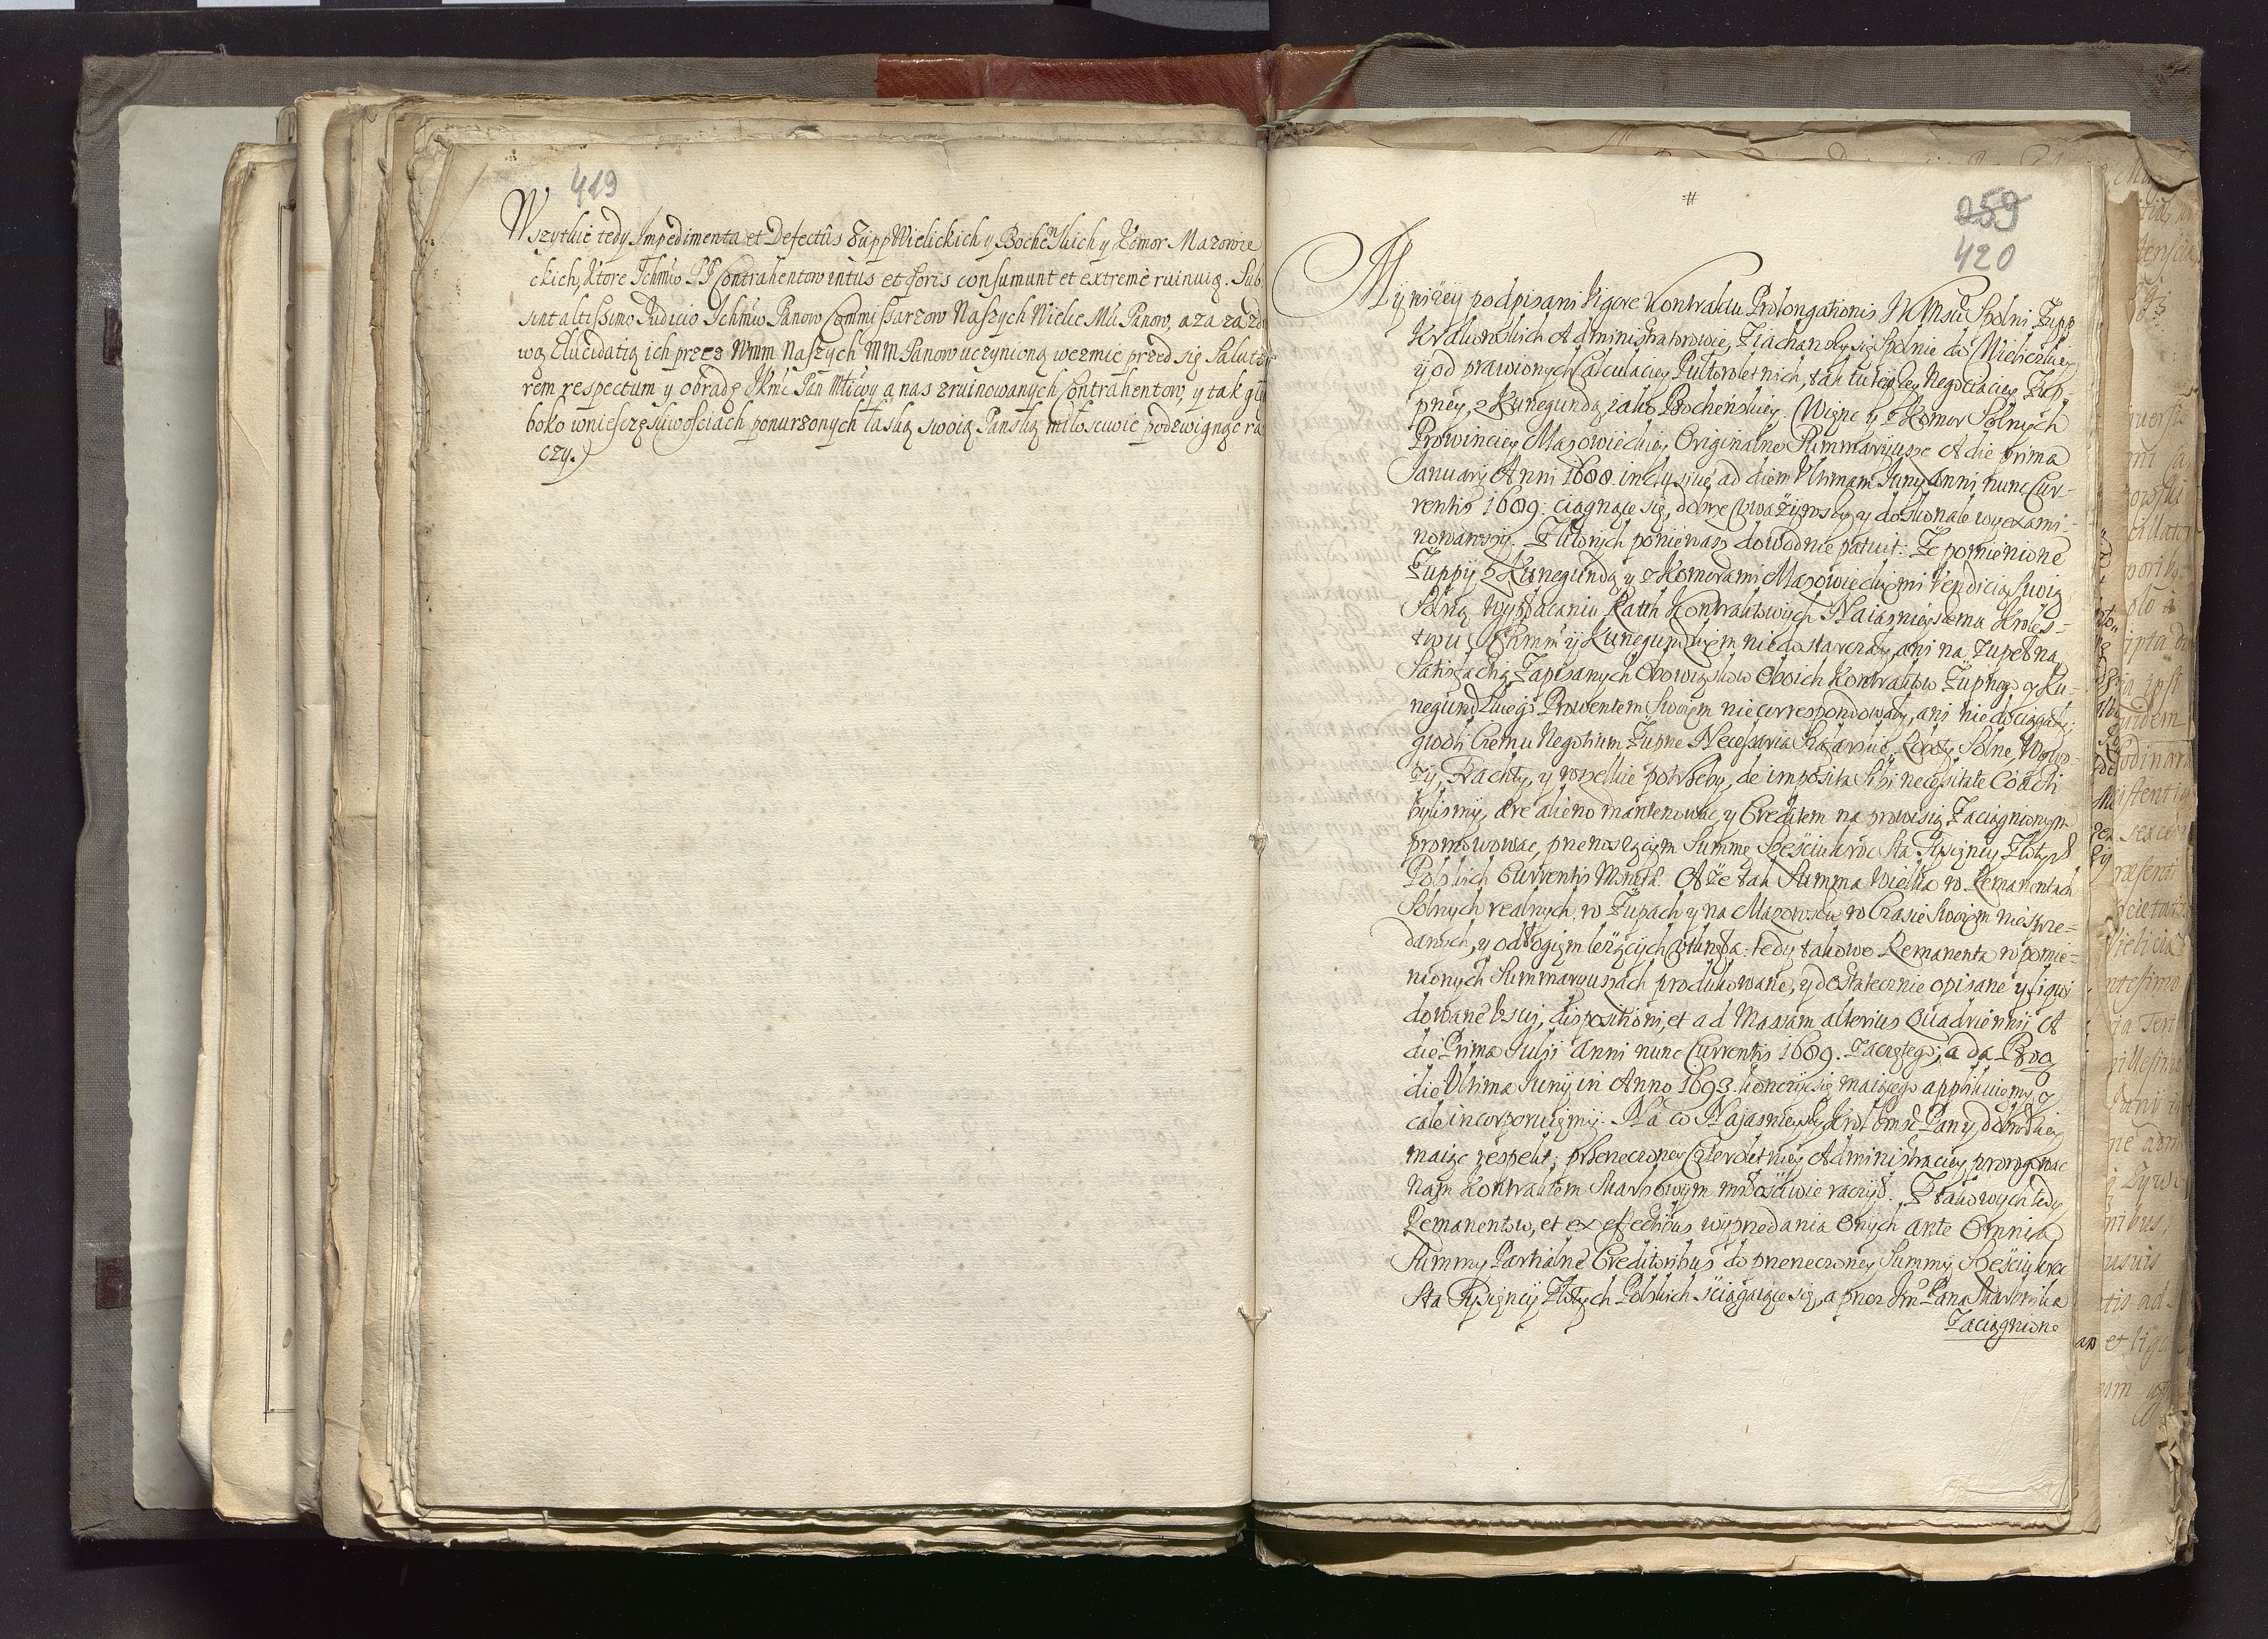 419
Wszytkie tedy Impedimenta et Defectus Zupp Wielickich y Bocheńskich y Komor Mazowie
ckich, ktore Ichmćiow PP Contrahentow intus et foris consumunt et extremè ruinuią. Sub
sint altissimo Judicio Ichmćiow Panow Commissarzow Naszych Wielce Mći Panow, a za zdro
wą Elucidatią ich przez Wmm Naszych MM Panow uczynioną wezmie przed się Saluta
rem respectum y obradę JKmć Pan Młćiwy a nas zruinowanych Contrahentow, y tak głę
boko w nieszczęsliwosciach ponurzonych łaską swoią Pańską miłosciwie podzwignąc ra
czy.)
#
259
420
My niżey podpisani Vigore Kontraktu Prolongationis JKMsci Spolni Zupp
Krakowskich Administratorowie, Ziachawszy się Spolnie do Wieliczki
y od prawionych Calculaciey Pułtoroletnich, tak tuteyszey Negociaciey Zup-
pney, z Kunegundą iako Bocheńskiey. Więc y z Komor Solnych
Prowinciey Mazowieckiey Originalne Summaryusze A die prima
Januarij Anni 1688. inclusiuè ad diem Vltimam Junij Anni nunc Cur-
rentis 1689. ciągnące się, dobrze Uważywszy y doskonale wyexami-
nowawszy. Z ktorych ponieważ dowodnie patuit. Ze pomienione
Zuppy z Kunegundą y z Komorami Mazowieckiemi Vendicią Swoią
Solną Wypłacaniu Ratth Kontraktowych Naiasnieyszema Kroles-
twu Ichmm y Kunegundzkiem nie dostarczały, ani na Zupełną
Satisfactią Zapisanych Obowiązkow Oboich Kontraktow Zupnego y Ku-
negundzkiego Prowentem Swoym nie correspondowały, ani nie dociągały;
gwoli Czemu Negotium Zupne Necessaria Szafarskie, Roboty Solne, Wolwa-
ry, Frachty, y wszelkie potrzeby, de imposita Sibi necessitate Coacti
bylismy, ære alieno mantenować, y Creditem na prowisią Zaciągnionym
promowowac, przenoszącym Summe Szesciukroć Sta Tysięcy Złotych
Polskich Currentis Moneta. A że tak Summa Wielka w Remanentach
Solnych realnych w Zupach y na Mazowszu w Czasie Swoym nie sprze-
danych, y odłogiem leżących utknęła: tedy takowe Remanenta w pomie-
nionych Summaryuszach produkowane, y dostatecznie opisane y liqui
dowane Vsui, dispositioni, et ad Massam alterius Quadriennij A
die Prima Julij Anni nunc Currentis 1689. Zaczętego, a da Bog
die Vltima Junij in Anno 1693. konczyć się maiącego applikuiemy y
cale incorporuiemy. Na co Najasnieyszy Krol Jmsć Pan y Dobrodziey
maiąc respekt, przerzeczoney Czteroletniey Administraciey prorogowac
nam Kontraktem Skarbowym miłosciwie raczył. Z takowych tedy
Remanentow, et ex effectibus wyprzedania Onych ante Omnia
Summy Partialne Creditoribus do przerzeczoney Summy Szesciukroć
Sta Tysięcy Złotych Polskich sciągaiące się, a przez Jmci Pana Skarbnika
Zaciągnione